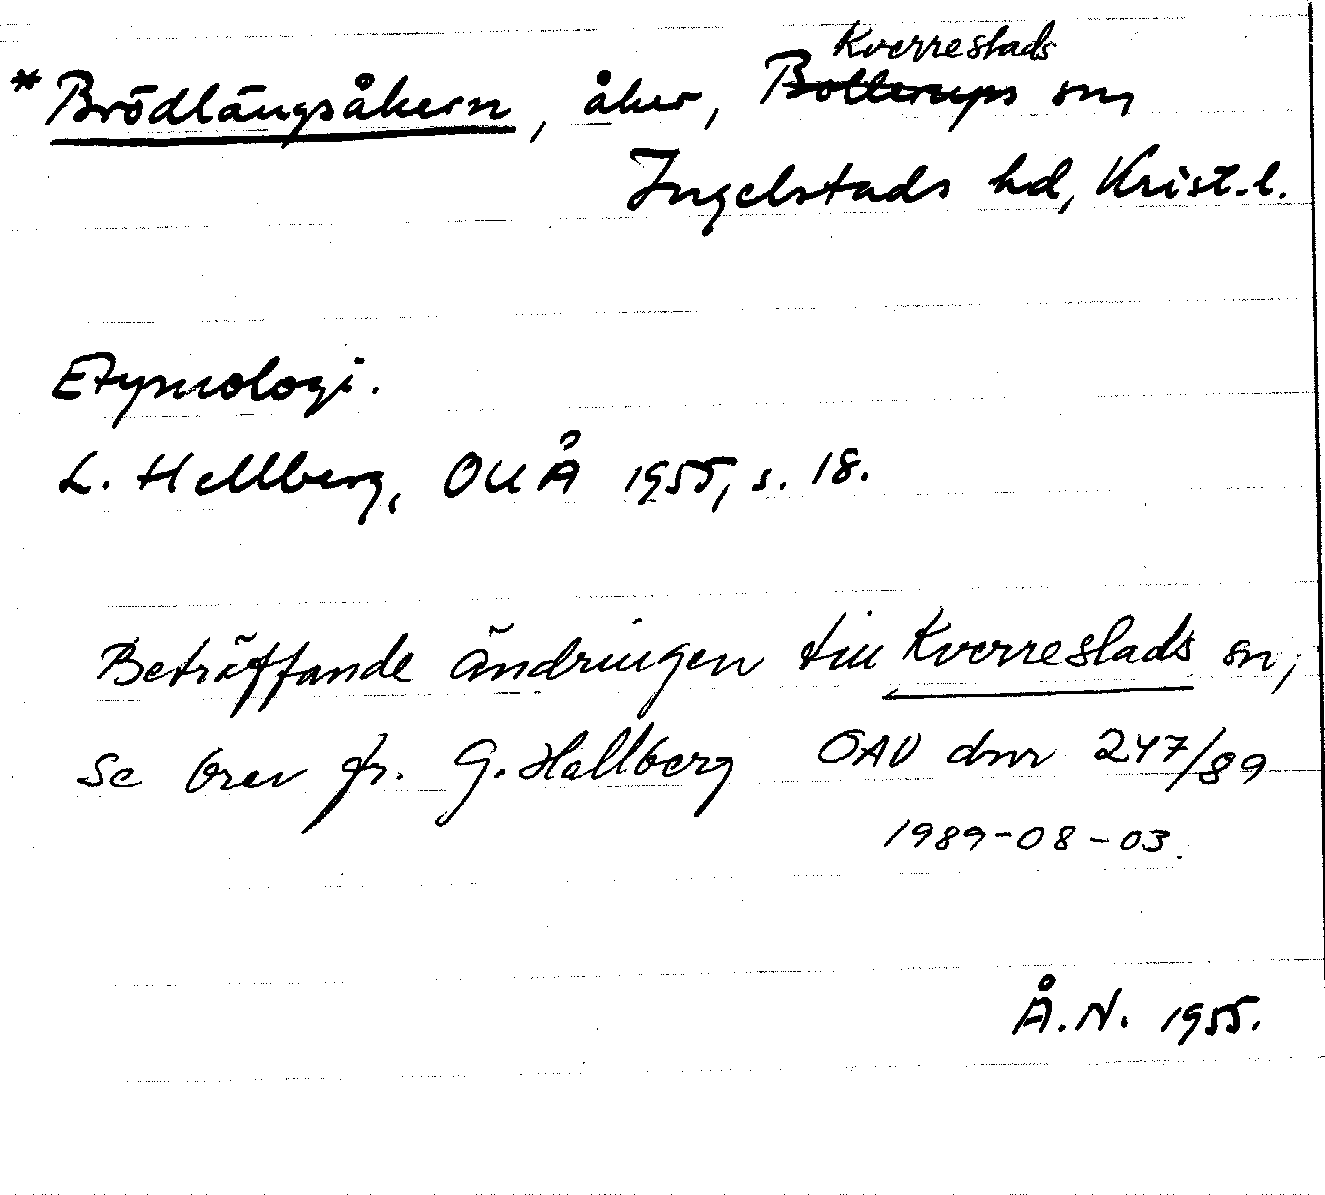 Kverrestads
*Brödlängsåkern, åker, Bollerups sn,
Ingelstads hd, Krist.l.
Etymologi.
L. Hellberg, OUÅ 1955, s. 18.
Beträffande ändringen till Kverrestads sn,
se brev fr. G. Hallberg OAU dnr 247/89
1989-08-03.
Å.N. 1955.